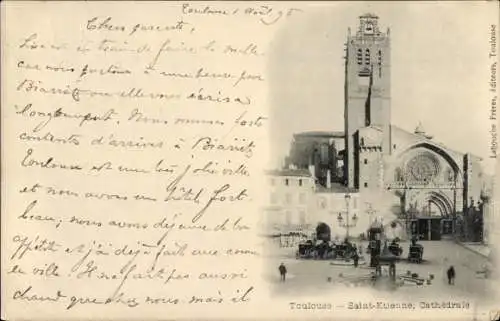 Toulouse 1 Août 98
Chers parents,
Lise est en train de faire la malle
car nous partons à une heure pour
Biarritz ou elle vous écrira
longuement. Nous sommes fort
contents d'arriver à Biarritz
Toulouse est une très jolie ville
et nous avons un hôtel fort
beau, nous avons déjeuné de bon
appétit et j'ai dejà fait une course
en ville. Il ne fait pas aussi
chaud que chez nous, mais il
TOULOUSE — Saint-Etienne, Cathédrale
Labouche Frères, éditeurs, Toulouse